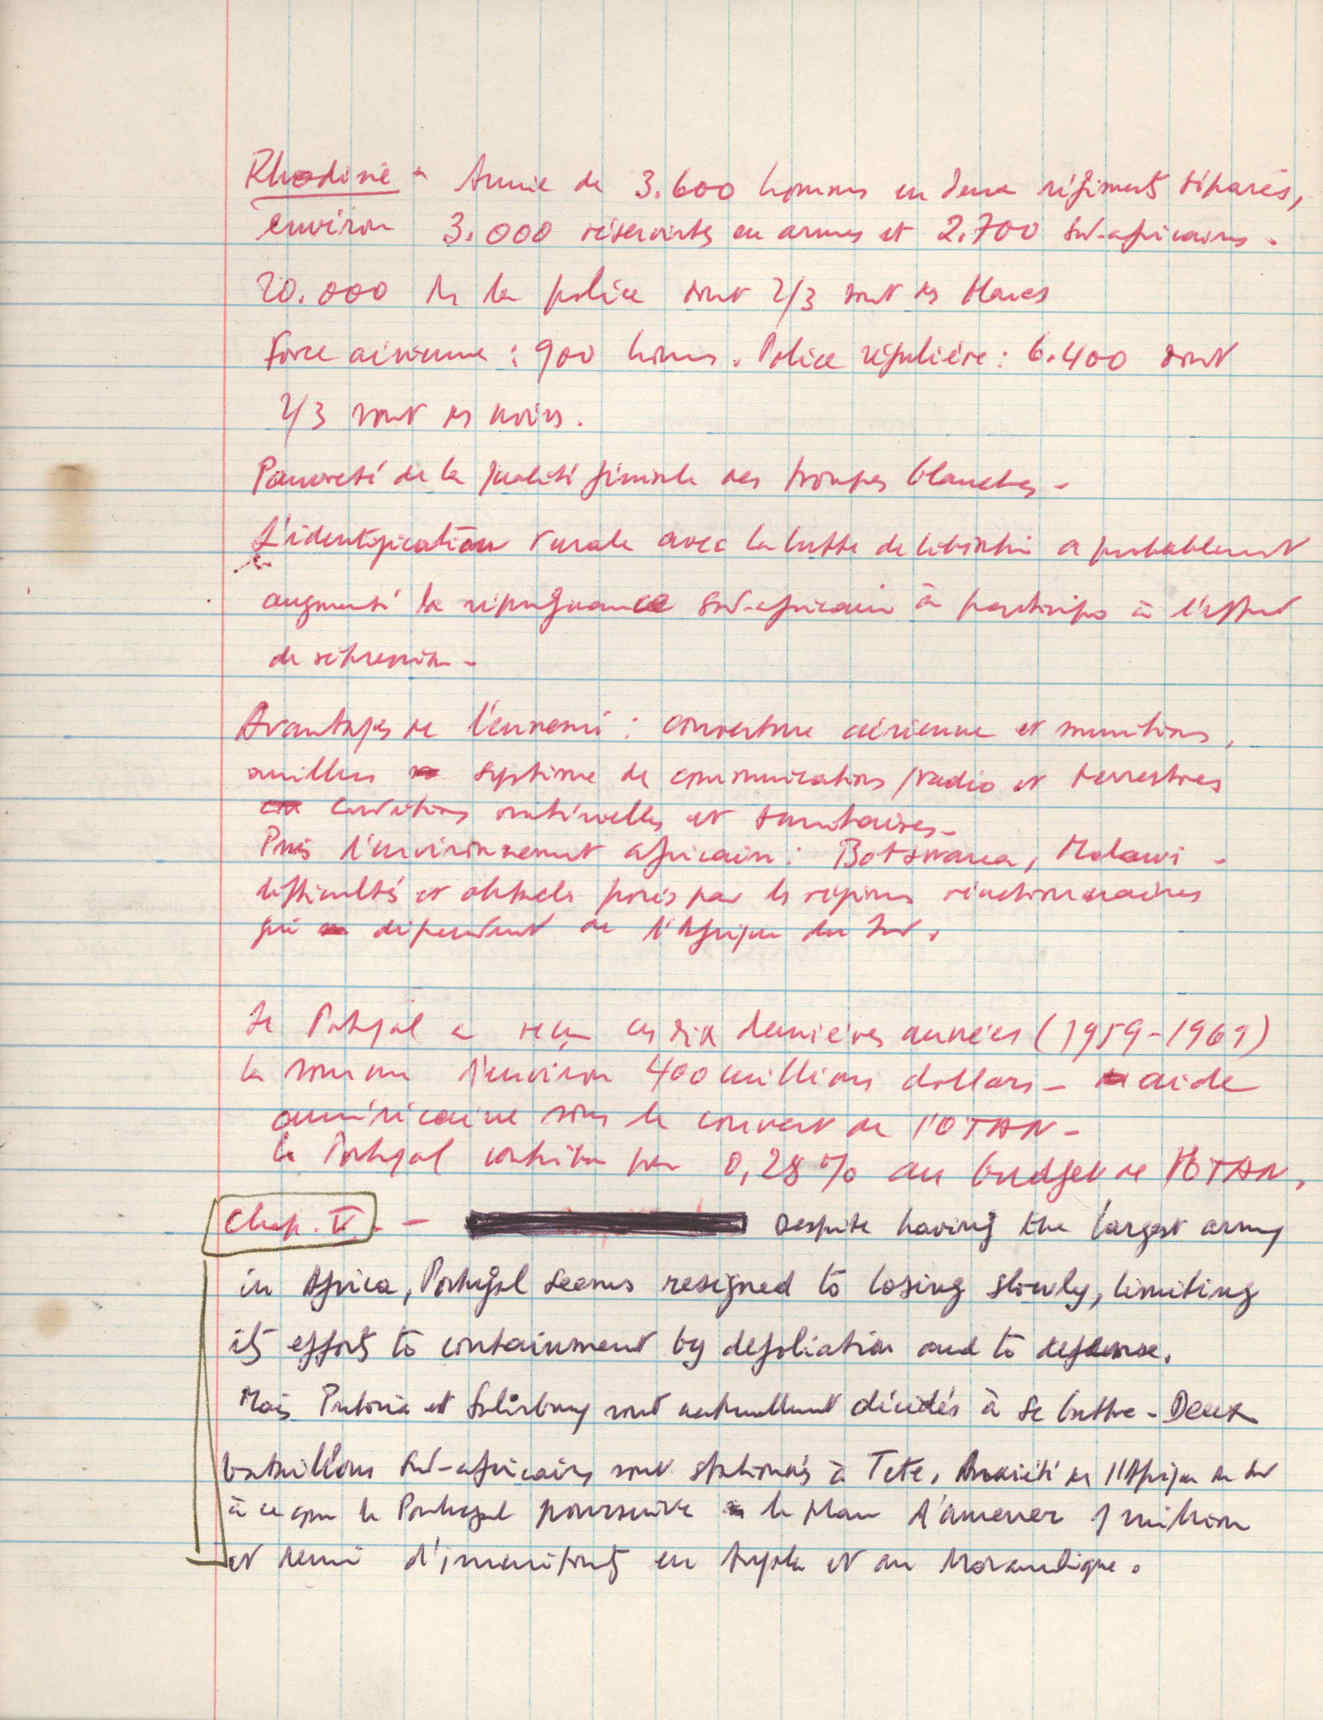 Rhodésie - Armée de 3.600 hommes en deux régiments séparés,
environ 3.000 réservistes en armes et 2.700 sud-africains.
20.000 de la police dont 2/3 sont des blancs
Force aérienne : 900 hommes. Police régulière : 6.400 dont
2/3 sont des noirs.
Pauvreté de la qualité générale des troupes blanches -
L'identification rurale avec la lutte de libération a probablement
augmenté la répugnance sud-africaine à participer à l'effort
de répression -
Avantages de l'ennemi : couverture aérienne et munitions,
meilleur système de communications radio et terrestres
conditions matérielles et sanitaires -
Puis l'environnement africain : Botswana, Malawi -
difficultés et obstacles posés par les régimes réactionnaires
qui dépendent de l'Afrique du Sud.
Le Portugal a reçu ces dix dernières années (1959-1969)
la somme d'environ 400 millions dollars - aide
américaine sous le couvert de l'OTAN -
Le Portugal contribue par 0,28% au budget de l'OTAN.
Chap. V. - Despite having the largest army
in Africa, Portugal seems resigned to losing slowly, limiting
its efforts to containment by defoliation and to defense.
Mais Pretoria et Salisbury sont actuellement décidés à se battre - Deux
bataillons sud-africains sont stationnés à Tete. Anxiété de l'Afrique du Sud
à ce que le Portugal poursuive le plan d'amener 1 million
et demi d'immigrants en Angola et au Mozambique.